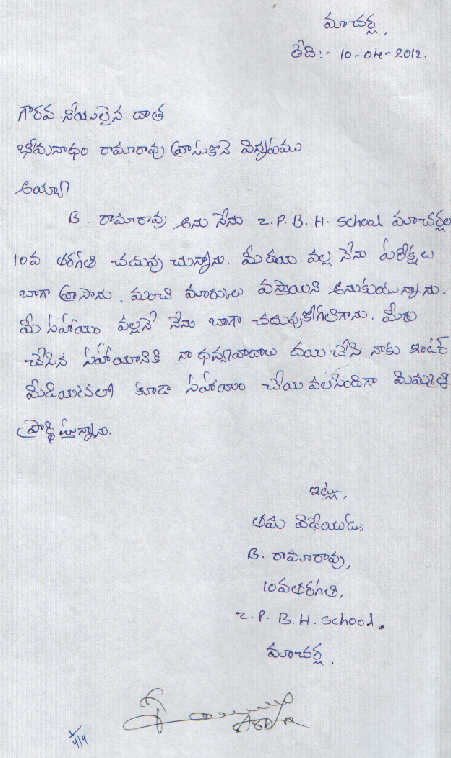 మాచర్ల,
తేది:- 10-04-2012.
గౌరవ నీయులైన దాత
భీమనాథం రామారావు వ్రాసుకొనె విన్నపము
అయ్యా
B. రామారావు అను నేను Z.P.B.H. School మాచర్లలో
10వ తరగతి చదువు చున్నాను. మీ దయ వల్ల నేను పరీక్షలు
బాగా వ్రాసాను. మంచి మార్కులు వస్తాయని అనుకుంటున్నాను.
మీ సహాయం వల్లనే నేను బాగా చదువుకోగలిగాను. మీరు
చేసిన సహాయానికి నా ధన్యవాదాలు దయ చేసి నాకు ఇంటర్
మీడియేట్‌లో కూడా సహాయం చేయ వలసిందిగా మిమ్మల్ని
ప్రార్థిస్తున్నాను.
ఇట్లు,
తమ విధేయుడు,
B. రామారావు,
10వ తరగతి,
Z. P. B. H. School.
మాచర్ల.